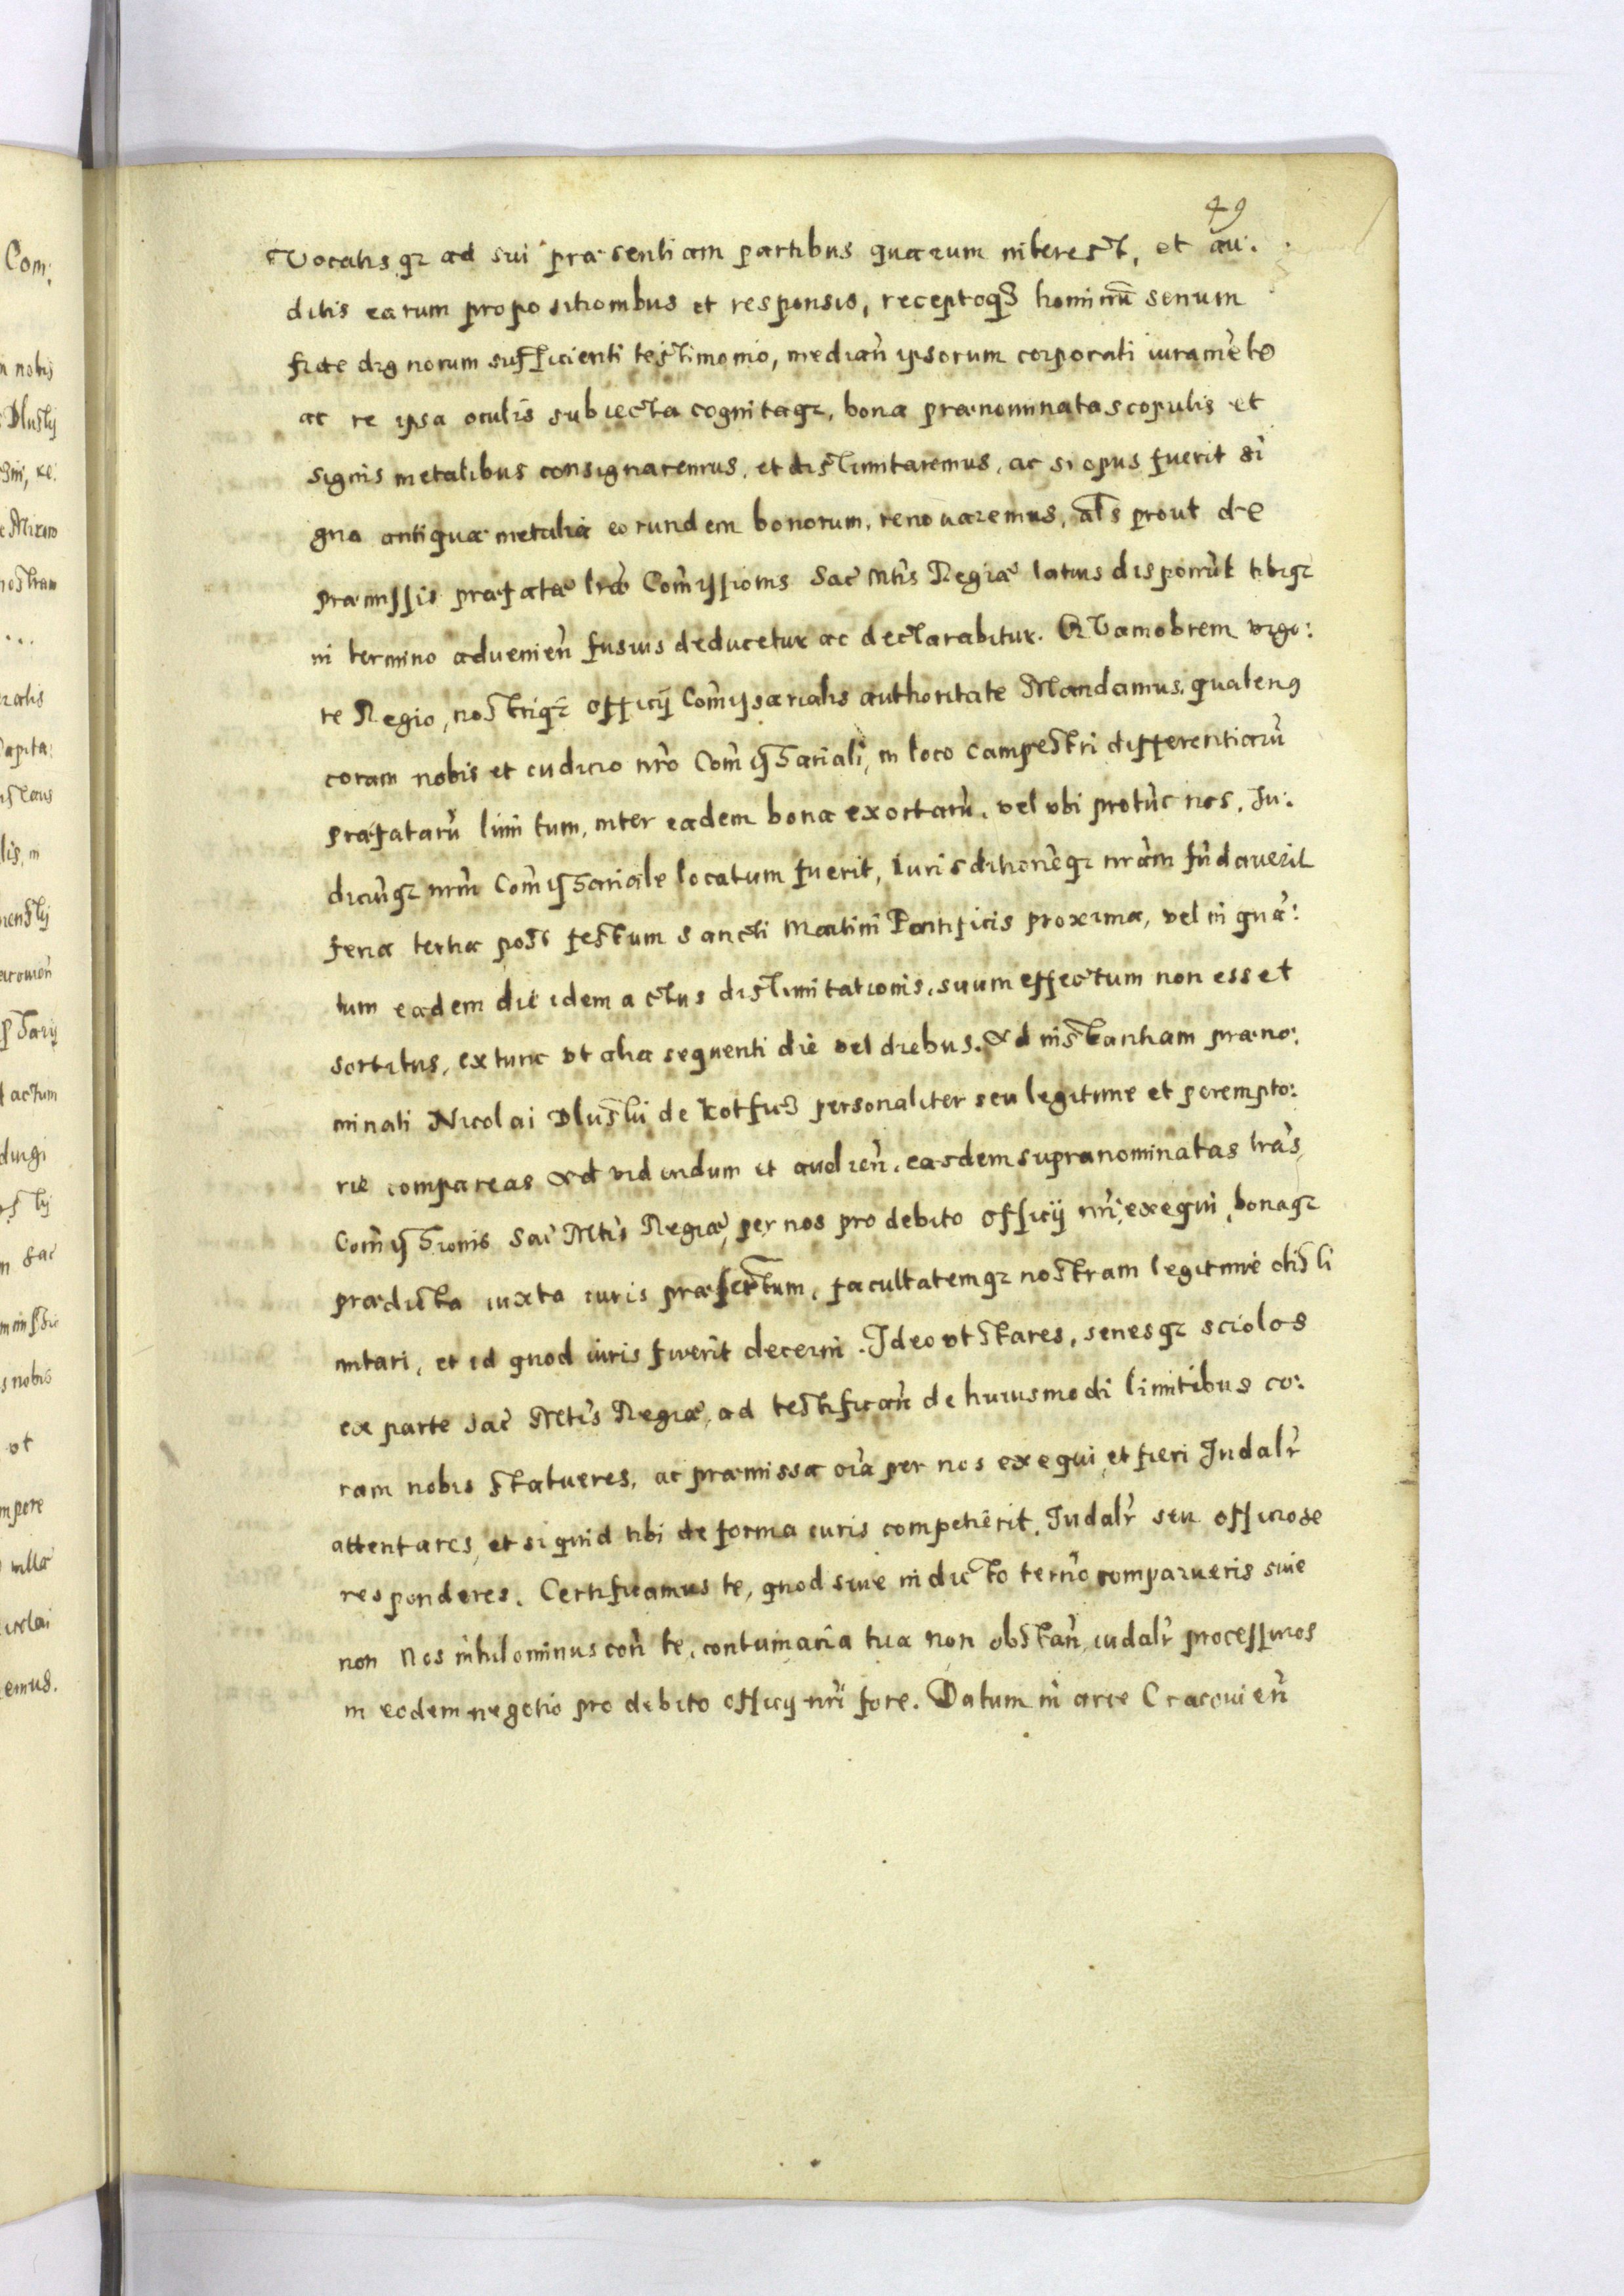 49
Vocatisq; ad sui præsentiam partibus quarum interest, et au:
ditis earum propositionibus et responsis, receptoq; hominū senum
fide dignorum sufficienti testimonio, median̄ ipsorum corporali iuramēto
ac re ipsa oculis subiecta cognitaq;, bona prænominata scopulis et
signis metalibus consignaremus, et distimitaremus, ac si opus fuerit si
gna antiqua metalia eorundem bonorum, renouaremus, al̄s prout de
præmissis præfatæ lr̄æ Com̄issionis Sac̄ Mt̄is Regiæ latius disponūt tibiq;
in termino aduenien̄ fusius deducetur ac declarabitur. QVamobrem vigo:
re Regio, nostriq; officij Com̄isarialis authoritate Mandamus, quatenꝰ
coram nobis et iudicio nr̄o Com̄issariali, in loco campestri differentiarū
præfatarū limitum, inter eadem bona exortarū, vel vbi protūc nos, Iu:
diciūq; nr̄m Com̄issariale locatum fuerit, iurisditionēq; nr̄am fūdauerit
feria tertia post festum sancti Martini Pontificis proxima, vel in quā:
tum eadem die idem actus distimitationis, suum effectum non esset
sortitus, extunc vt alia sequenti die vel diebus. Ad instantiam præno:
minati Nicolai Dluski de Kotfis personaliter seu legitime et perempto:
rie compareas Ad videndum et audien̄, easdem supranominatas lr̄as,
Com̄issionis Sac̄ Mt̄is Regiæ, per nos pro debito officij nr̄i, exequi, bonaq;
prædicta iuxta iuris præscriptum, facultatemq; nostram legitime disli
mitari, et id quod iuris fuerit decerni. Ideo vt stares, senesq; sciolos
ex parte Sac̄ Mt̄is Regiæ, ad testifican̄ de huiusmodi limitibus co:
ram nobis statueres, ac præmissa oı̄a per nos exequi, et fieri Iudalr̄
attentares, et si quid tibi de forma iuris competierit, Iudalr̄ seu officiose
responderes. Certificamus te, quod siue in dicto term̄o comparueris siue
non Nos nihilominus con̄ te, contumacia tua non obstan̄, iudalr̄ processuros
in eodem negotio pro debito officij nr̄i fore. Datum in arce Cracouien̄